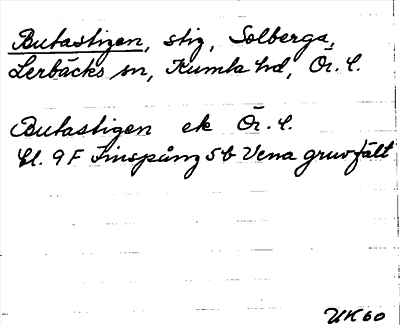 Butastigen, stig, Solberga,
Lerbäcks sn, Kumla hd, Ör. l.
Butastigen ek Ör. l.
bl. 9F Finspång SV Vena gruvfält
UK60